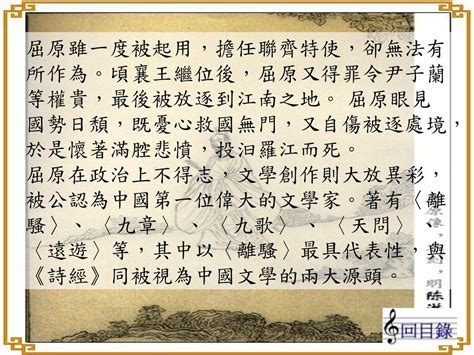 屈原雖一度被起用，擔任聯齊特使，卻無法有
所作為。頃襄王繼位後，屈原又得罪令尹子蘭
等權貴，最後被放逐到江南之地。 屈原眼見
國勢日頹，既憂心救國無門，又自傷被逐處境，
於是懷著滿腔悲憤，投汨羅江而死。
屈原在政治上不得志，文學創作則大放異彩，
被公認為中國第一位偉大的文學家。著有〈離
騷〉、〈九章〉、〈九歌〉、〈天問〉、
〈遠遊〉等，其中以〈離騷〉最具代表性，與
《詩經》同被視為中國文學的兩大源頭。
回目錄